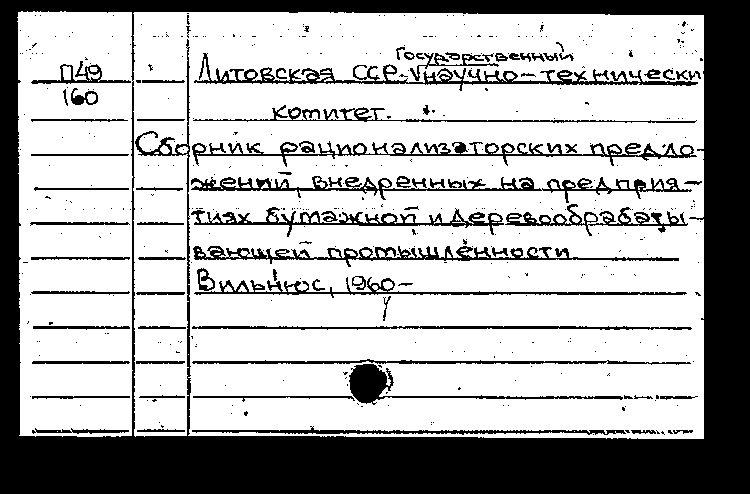 Государственный
П49 Литовская ССР. Vнаучно-технически
160 комитет.
Сборник рационализаторских предло-
жений, внедренных на предприя-
тиях бумажной и деревообрабаты-
вающей промышленности
Вильнюс, 1960-